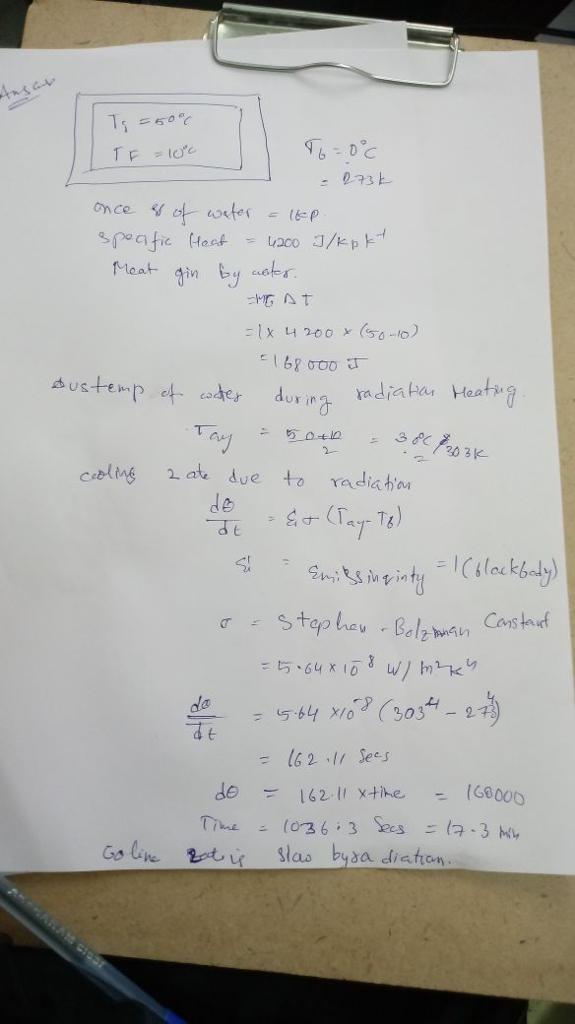 Answer
Ts = 50°C
TF = 10°C
T6 = 0°C
= 273k
once of water = 1kp.
specific Heat = 4200 J/kp k⁻¹
Meat gin by water.
= ΔT
= 1 x 4200 x (50-10)
= 168000 J
temp of water during radiation Heating.
Tay = 50+10/2 = 30°C / 303K
cooling rate due to radiation
dθ/dt = σ (Tay - T6)
= Emissinginty = 1 (blackbody)
σ = Stephen - Bolzmnan Constant
= 5.64 x 10⁻⁸ W/m²k⁴
dθ/dt = 5.64 x10⁻⁸ (303⁴ - 273⁴)
= 162.11 Secs
dθ = 162.11 x time = 168000
Time = 1036.3 Secs = 17.3 min
is slow by radiation.